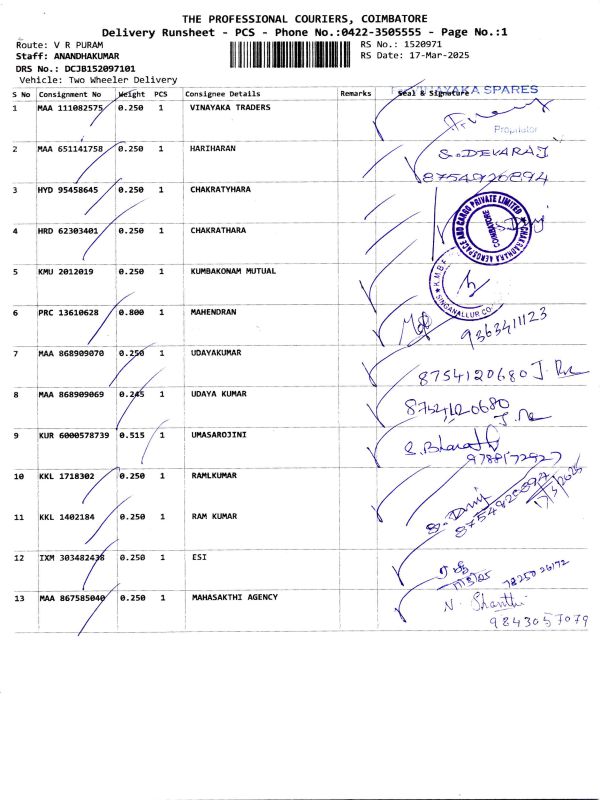 THE PROFESSIONAL COURIERS, COIMBATORE
Delivery Runsheet - PCS - Phone No.:0422-3505555 - Page No.:1
Route: V R PURAM RS No.: 1520971
Staff: ANANDHAKUMAR RS Date: 17-Mar-2025
DRS No.: DCJB152097101
Vehicle: Two Wheeler Delivery
S No Consignment No Weight PCS Consignee Details Remarks Seal & Signature
VINAYAKA SPARES
1 MAA 111082575 0.250 1 VINAYAKA TRADERS
Proprietor
2 MAA 651141758 0.250 1 HARIHARAN S.DEVARAJ
8754926894
3 HYD 95458645 0.250 1 CHAKRATYHARA
CHAKSADHARA AEROSPACE AND CARGO PRIVATE LIMITED
COIMBATORE
4 HRD 62303401 0.250 1 CHAKRATHARA
5 KMU 2012019 0.250 1 KUMBAKONAM MUTUAL
SINGANALLUR
6 PRC 13610628 0.800 1 MAHENDRAN 9363411123
7 MAA 868909070 0.250 1 UDAYAKUMAR
8754120680
8 MAA 868909069 0.245 1 UDAYA KUMAR 8754120680
9 KUR 6000578739 0.515 1 UMASAROJINI S.Bharath
9788172927
10 KKL 1718302 0.250 1 RAMLKUMAR
17/3/2025
11 KKL 1402184 0.250 1 RAM KUMAR
12 IXM 303482438 0.250 1 ESI
13 MAA 867585040 0.250 1 MAHASAKTHI AGENCY N. Shanthi
9843057079